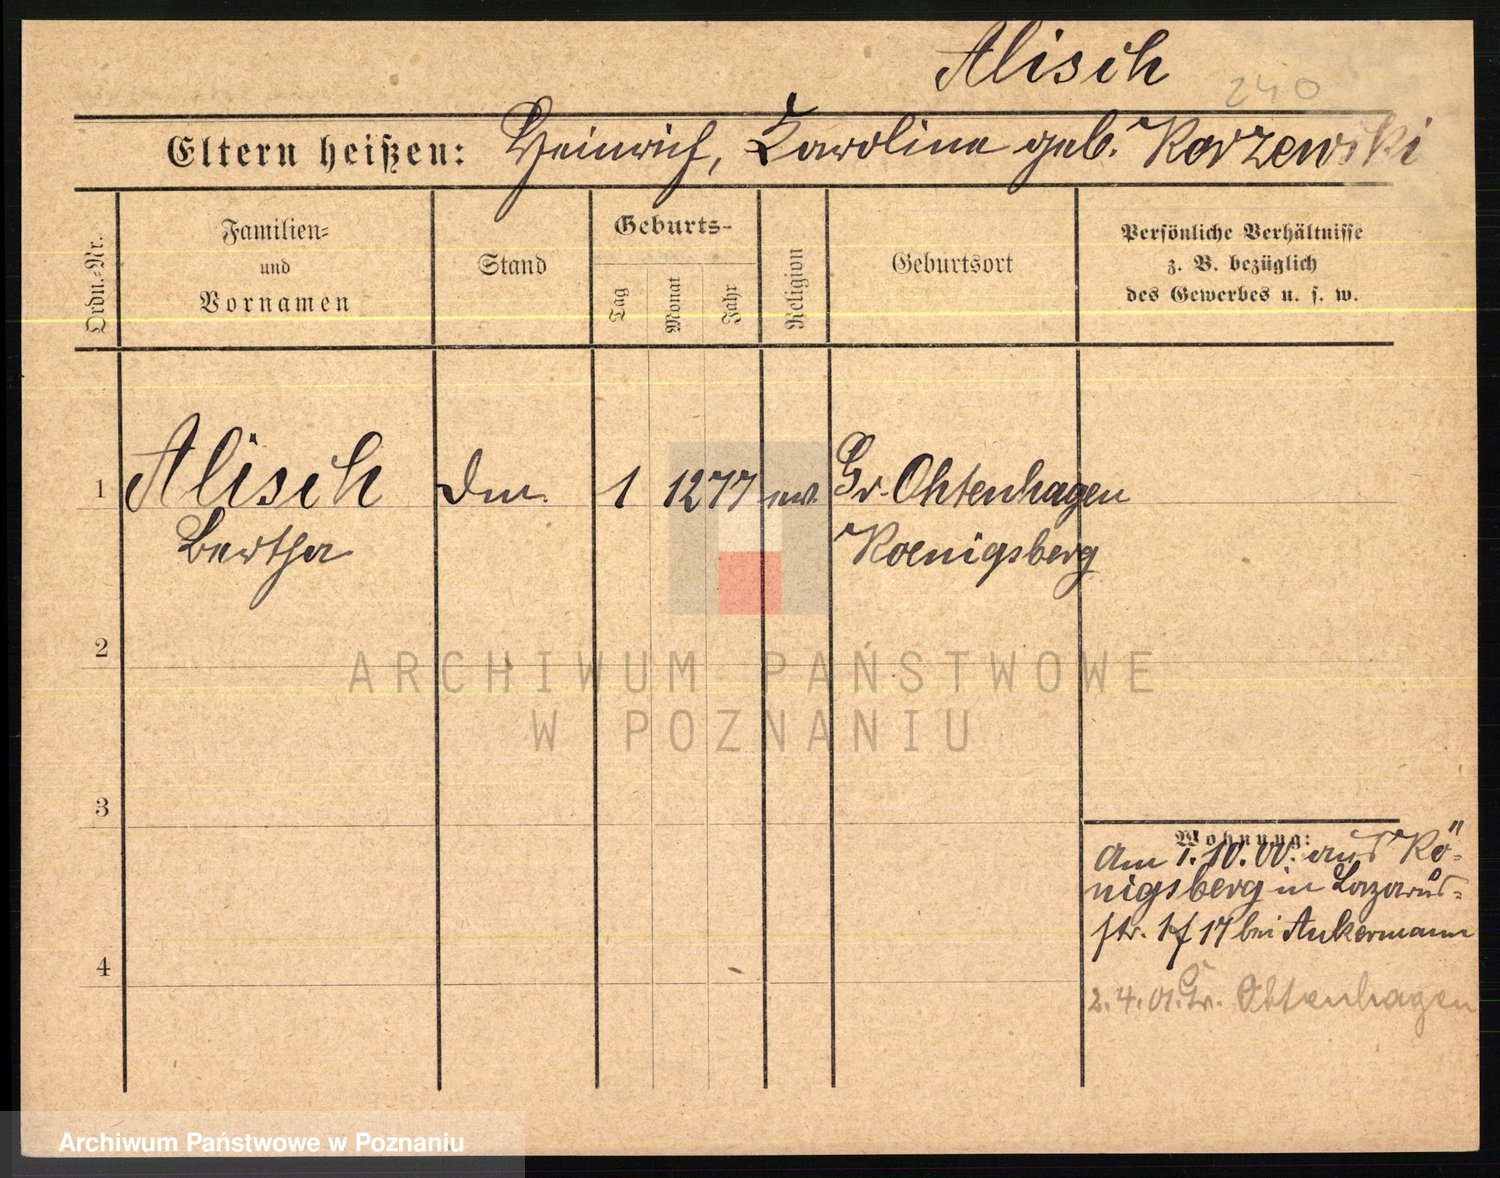 Alisch
240
Eltern heißen: Heinrich, Karoline geb. Korzewski
Ordn.-Nr.
Familien-
und
Vornamen
Stand
Geburts-
Tag
Monat
Jahr
Religion
Geburtsort
Persönliche Verhältnisse
z. B. bezüglich
des Gewerbes u. s. w.
1 Alisch 1 12 77 ev. Gr. Ohtenhagen
Bertha Koenigsberg
2
3
4
Wohnung:
Am 1.10.00. aus Kö-
nigsberg in Lazarus-
str. 17 bei Ankermann
2.4.01. Gr. Ohtenhagen
ARCHIWUM PAŃSTWOWE
W POZNANIU
Archiwum Państwowe w Poznaniu